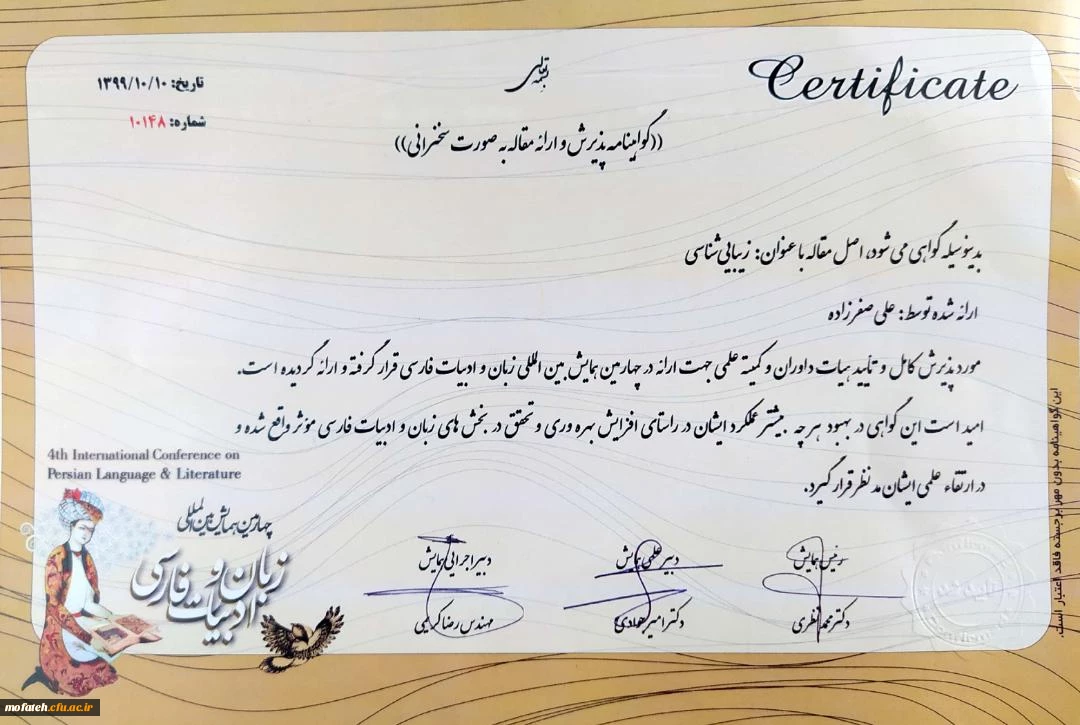 Certificate
بسمه تعالی
تاریخ: ۱۳۹۹/۱۰/۱۰
شماره: ۱۰۱۴۸
((گواهینامه پذیرش و ارائه مقاله به صورت سخنرانی))
بدینوسیله گواهی می شود، اصل مقاله با عنوان: زیبایی شناسی
ارائه شده توسط: علی صفرزاده
مورد پذیرش کامل و تأیید هیات داوران و کمیته علمی جهت ارائه در چهارمین همایش بین المللی زبان و ادبیات فارسی قرار گرفته و ارائه گردیده است.
امید است این گواهی در بهبود هرچه بیشتر عملکرد ایشان در راستای افزایش بهره وری و تحقق در بخش های زبان و ادبیات فارسی مؤثر واقع شده و
در ارتقاء علمی ایشان مد نظر قرار گیرد.
4th International Conference on
Persian Language & Literature
چهارمین همایش بین المللی
زبان و
ادبیات فارسی
رئیس همایش
دکتر محمد نظری
دبیر علمی همایش
دکتر امیر
دبیر اجرایی همایش
مهندس رضا کریمی
این گواهینامه بدون مهر برجسته فاقد اعتبار است.
mofateh.cfu.ac.ir